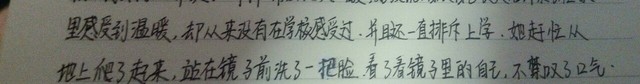 里感受到温暖，却从来没有在学校感受过，并且还一直排斥上学。她赶忙从
地上爬了起来，站在镜子前洗了一把脸，看了看镜子里的自己，不禁叹了口气。